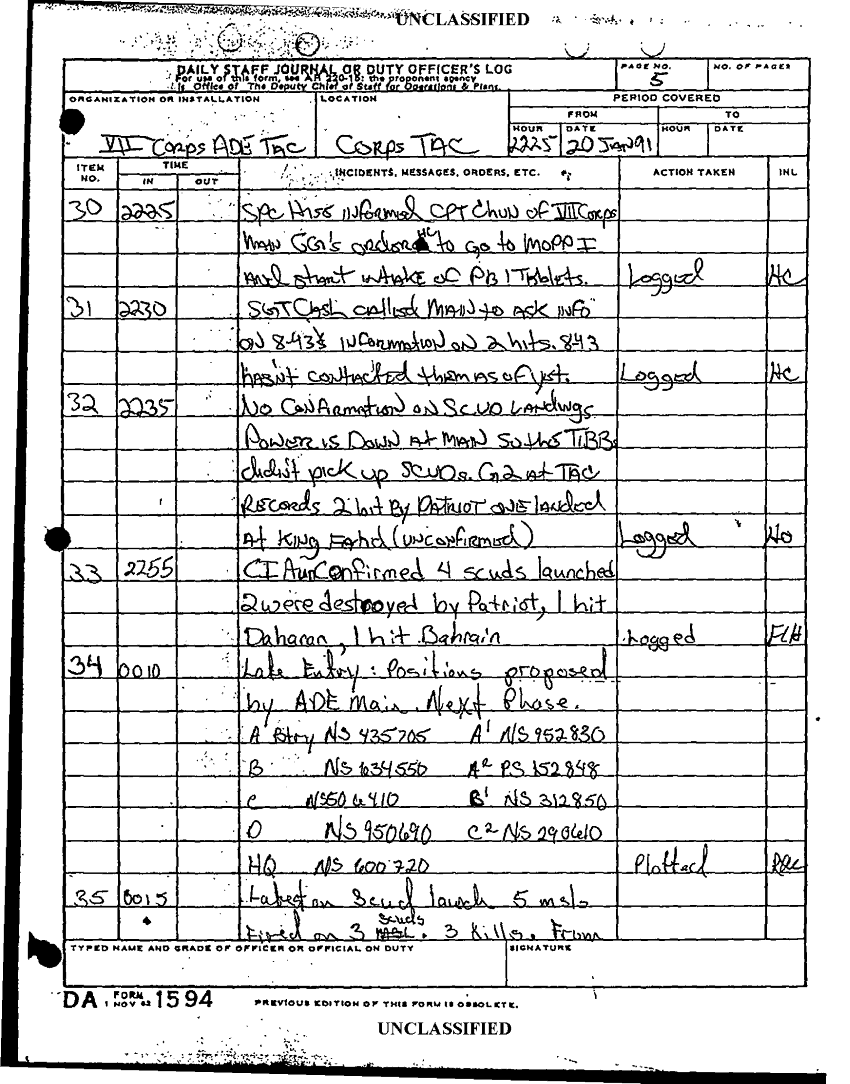 UNCLASSIFIED
DAILY STAFF JOURNAL OR DUTY OFFICER'S LOG
For use of this form, see AR 220-15; the proponent agency
is Office of The Deputy Chief of Staff for Operations & Plans.
PAGE NO.
5
NO. OF PAGES
ORGANIZATION OR INSTALLATION
VII Corps ADE TAC
LOCATION
CORPS TAC
PERIOD COVERED
FROM TO
HOUR DATE HOUR DATE
2225 20 JAN 91
ITEM NO. TIME IN OUT INCIDENTS, MESSAGES, ORDERS, ETC. ACTION TAKEN INL
30 2225 SPC Hiss informed CPT Chun of VII Corps
MAIN CG's orders to go to MOPP I
And start intake of PB 1 Tablets. Logged HC
31 2230 SGT Cash called MAIN to ASK info
ON 8-43's INFORMATION ON 2 hits. 843
hasn't contacted them as of yet. Logged HC
32 2235 No Confirmation on SCUD LANdings
Power is Down At MAIN So the TIBBs
didn't pick up SCUDs. G2 at TAC
RECORDS 2 hit By PATRIOT ONE landed
At KING Fahd (UNConfirmed) Logged
33 2255 Confirmed 4 scuds launched
2 were destroyed by Patriot, 1 hit
Daharan, 1 hit Bahrain Logged
34 0010 Late Entry : Positions proposed
by ADE Main. Next Phase.
A Btry NS 435705 A1 NS 952830
B NS 634550 A2 PS 152848
C NS 506410 B1 NS 312850
D NS 950690 C2 NS 290610
HQ NS 600 720 Plotted
35 0015 Latest on Scud launch 5 msls
Fired on 3 scuds. 3 Kills. From
TYPED NAME AND GRADE OF OFFICER OR OFFICIAL ON DUTY SIGNATURE
DA FORM 1 NOV 62 1594 PREVIOUS EDITION OF THIS FORM IS OBSOLETE.
UNCLASSIFIED